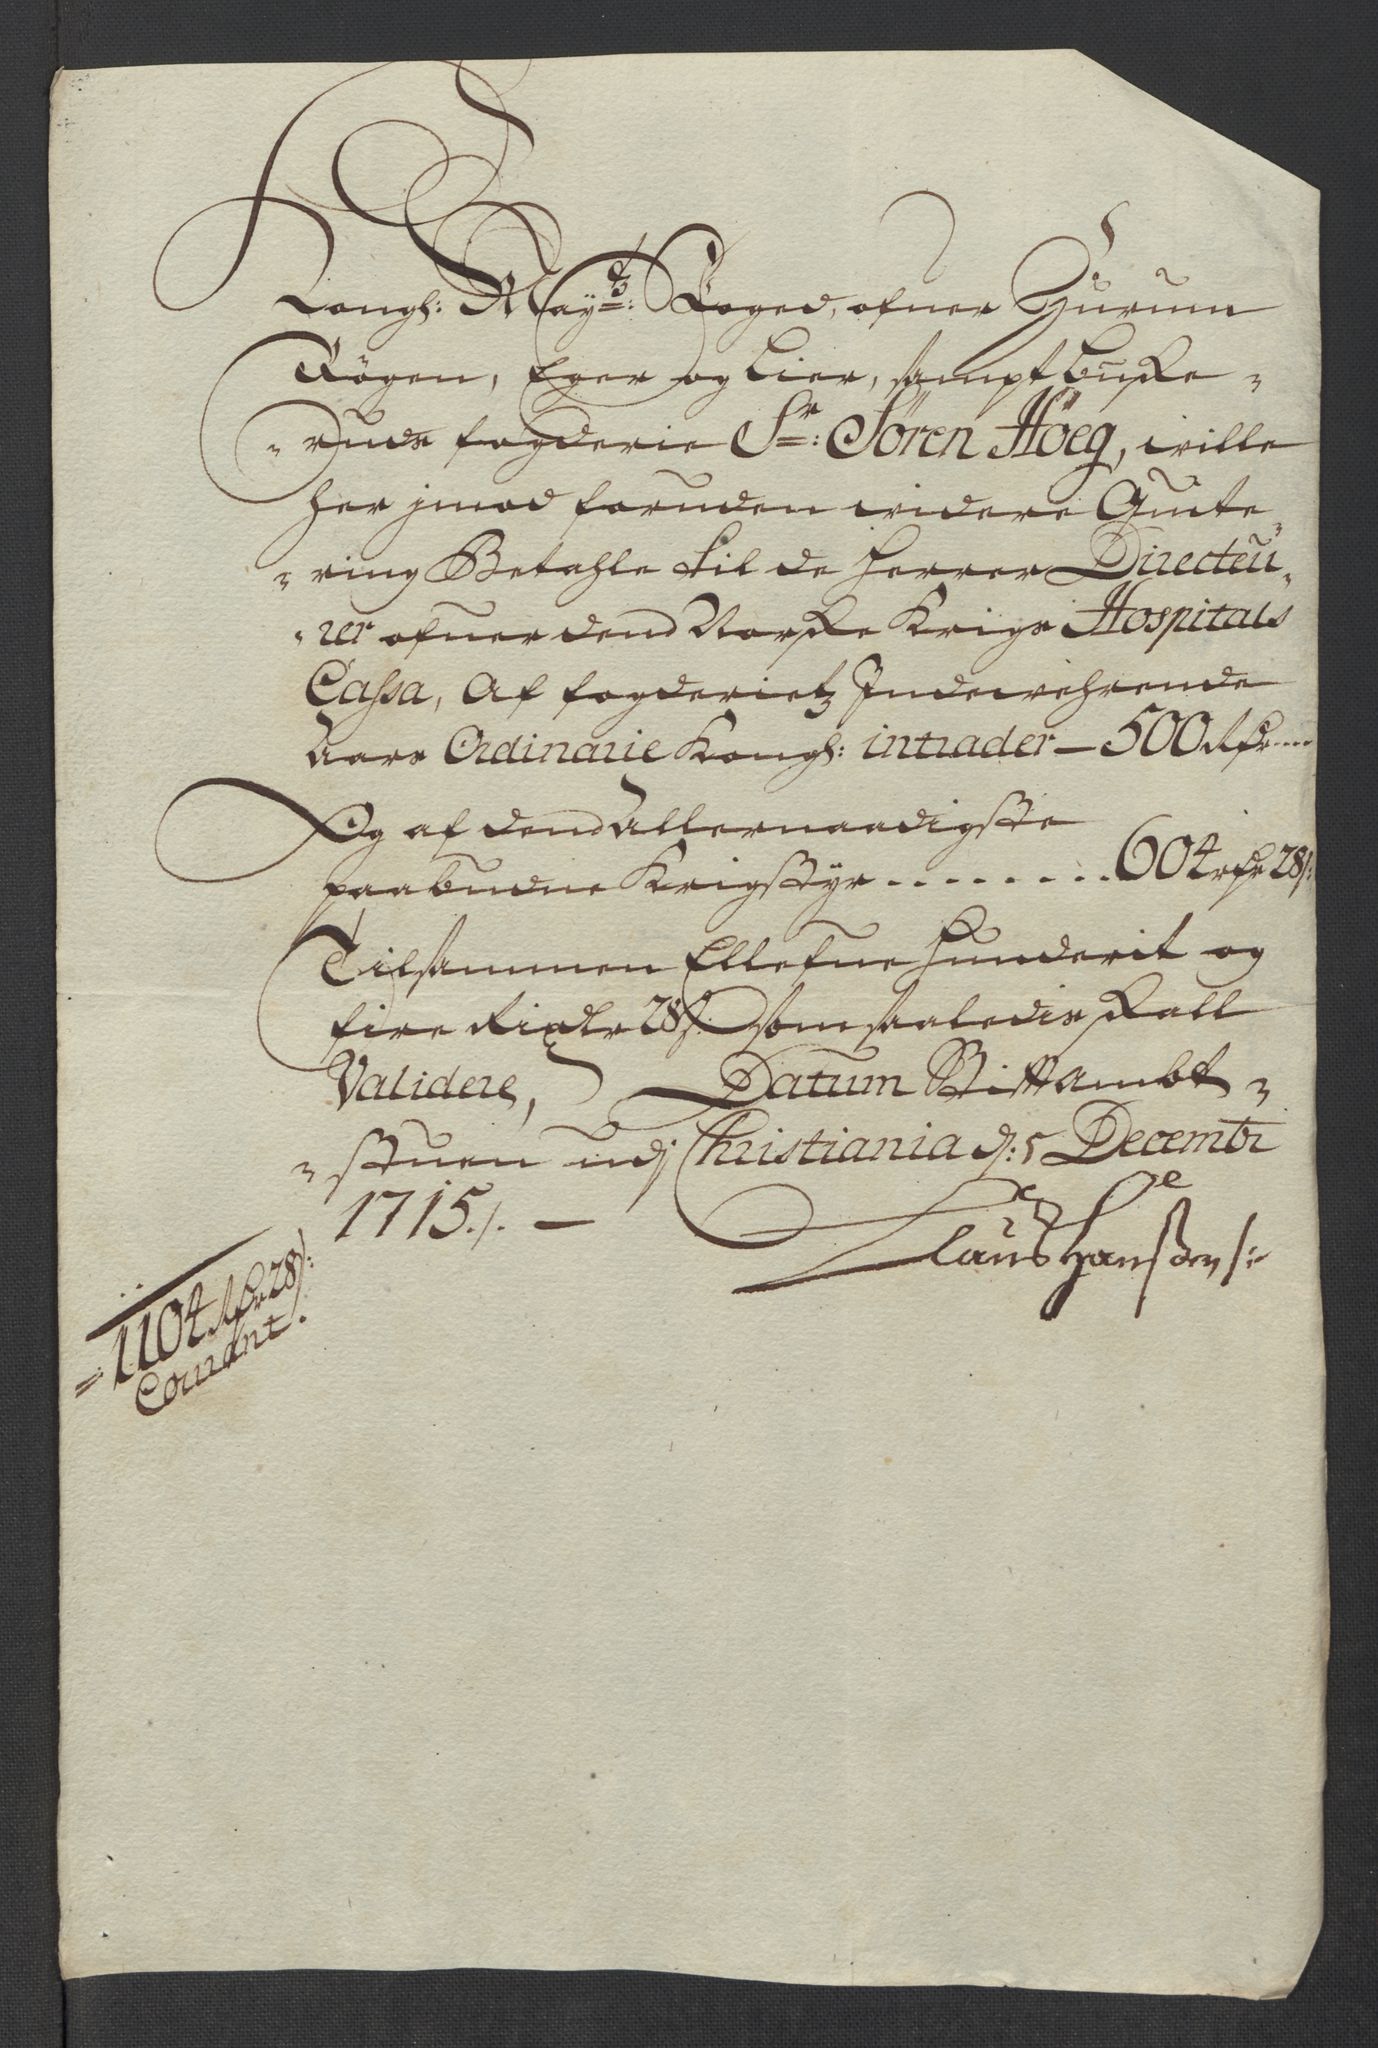 Kongl: May:ts Foged, ofuer Hurum
Rögen, Eger og Lier, sampt buske-
-ruds fogderie Sr: Sören Höeg, wille
her imod foruden widere Quite-
-ring Betahle til de Herrer Directeu-
-rer ofuer dend Norske Krigs Hospitals
Cassa, Af fogderietz Indewehrende
Aars Ordinarie Kongl: intrader — 500 Rdr
Og af dend Allernaadigste
paabudne Krigstyr . . . . . . . . . 604 rdr 28 s:
Tilsammen Ellefue Hunderit og
fire Rixdlr 28 s. som saaledis skall
Validere, Datum Stiftambt-
-stuen udj Christiania d: 5 Decembr
1715./. —
Claus Hanssen
= 1104 Rdr 28 s:
Courant.